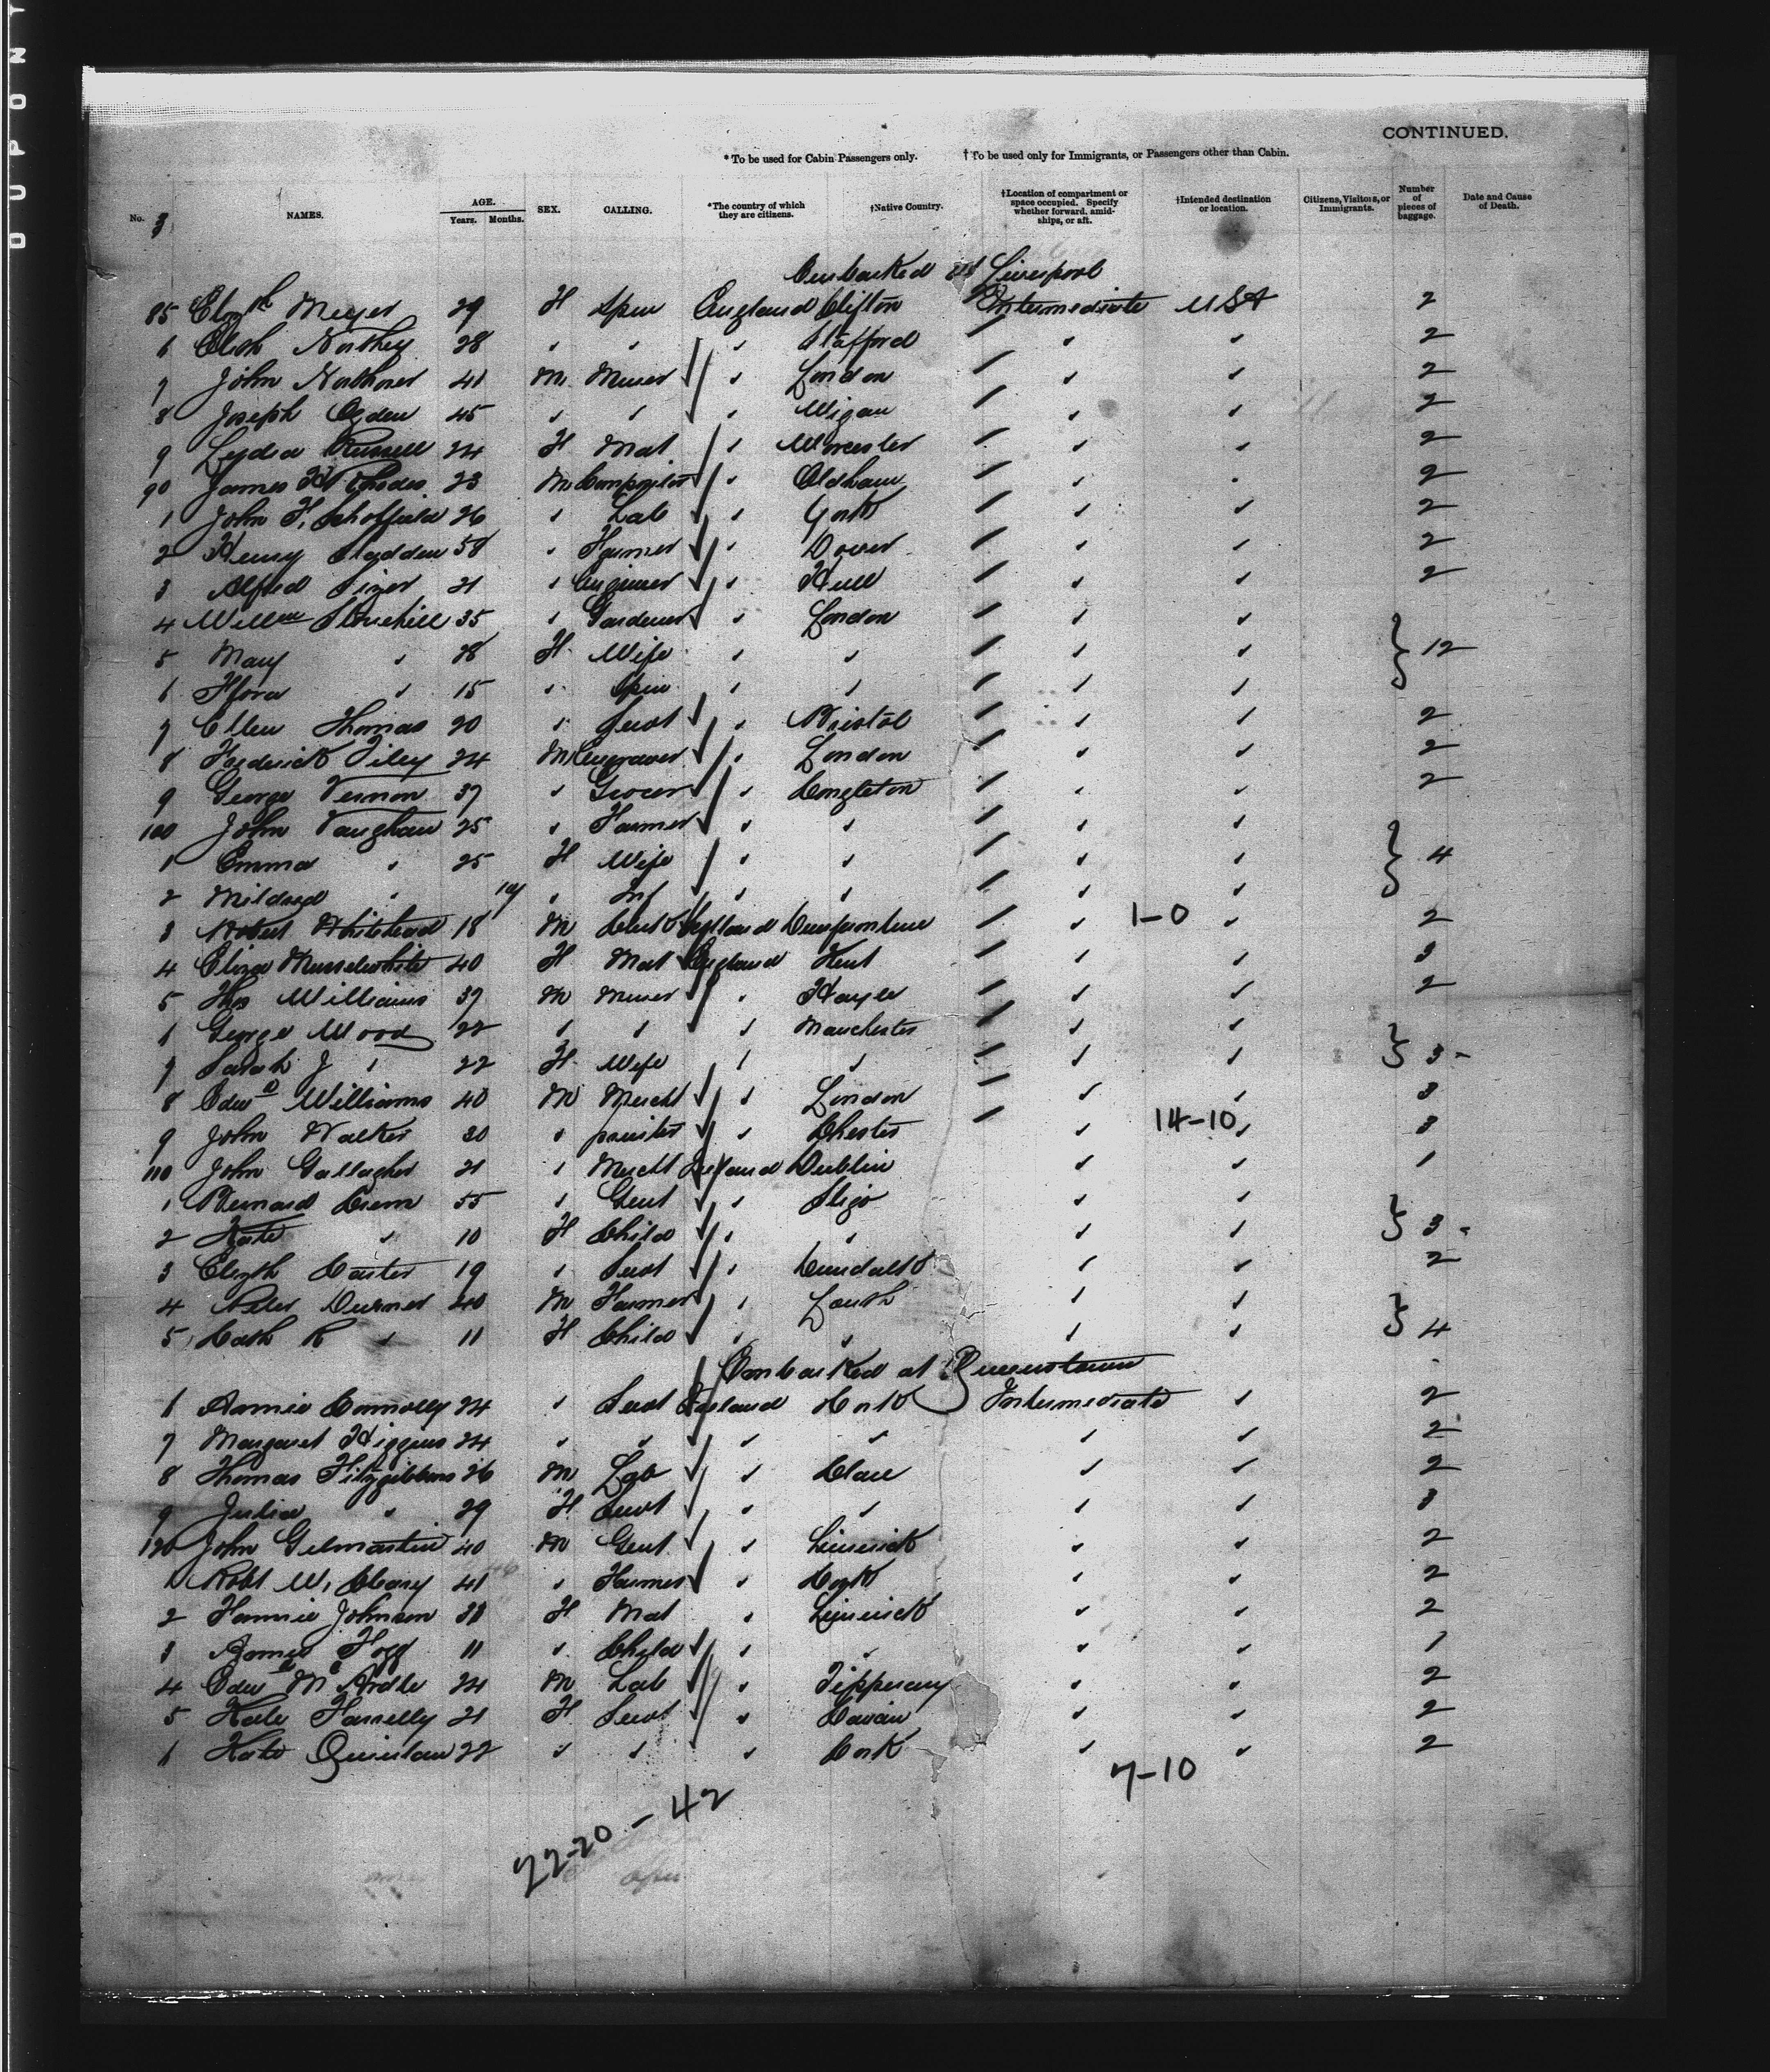 DUPONT
CONTINUED.
* To be used for Cabin Passengers only. † To be used only for Immigrants, or Passengers other than Cabin.
No. 3 NAMES. AGE. Years. Months. SEX. CALLING. *The country of which they are citizens. †Native Country. †Location of compartment or space occupied. Specify whether forward, amidships, or aft. †Intended destination or location. Citizens, Visitors, or Immigrants. Number of pieces of baggage. Date and Cause of Death.
Embarked at Liverpool
85 Elizth Meyer 29 F Spin England Clifton Intermediate USA 2
6 Elizh Northey 28 " " " Stafford " " 2
7 John 41 M Miner " London " " 2
8 Joseph Ogden 45 " " " Wigan " " 2
9 Lydia Russell 24 F Mat " Worcester " " 2
90 James H Rhodes 23 M Compositor " Oldham " " 2
1 John F. Schoffield 26 " Lab " York " " 2
2 Henry 58 " Farmer " Dover " " 2
3 Alfred 21 " Engineer " Hull " " 2
4 Willm Stonehill 35 " Gardener " London " "
5 Mary " 38 F Wife " " " " } 12
6 Flora " 15 " Spin " " " "
7 Ellen Thomas 20 " Servt " Bristol " " 2
8 Frederick Tiley 24 M Engraver " London " " 2
9 George Vernon 37 " Grocer " Congleton " " 2
100 John Vaughan 25 " Farmer " " " "
1 Emma " 25 F Wife " " " " } 4
2 Mildred " " Inf " " " "
3 Robert Whitehead 18 M Clerk Dumfernline " 1-0 " 2
4 Eliza Musselwhite 40 F Mat England Kent " " 3
5 Thos Williams 37 M Miner " Hayle " " 2
6 George Wood 22 " " " Manchester " "
7 Sarah J " 22 F Wife " " " " } 3 -
8 Edwd Williams 40 M Mercht " London " " 3
9 John Walker 30 " printer " Chester " 14-10 " 3
110 John Gallagher 21 " Mercht Ireland Dublin " " 1
1 Bernard Crem 55 " Gent " Sligo " "
2 Kate " 10 F Child " " " " } 3 -
3 Elizth Carter 19 " Servt " Dundalk " " 2
4 Peter 40 M Farmer " Louth " "
5 Cath R " 11 F Child " " " " } 4
Embarked at Queenstown
6 Annie Connolly 24 " Servt Ireland Cork Intermediate " 2
7 Margaret Higgins 24 " " " " " " 2
8 Thomas Fitzgibbons 26 M Lab " Clare " " 2
9 Julia " 29 F Servt " " " " 3
120 John Gilmartin 40 M Gent " Limerick " " 2
1 Robt W. Cleary 41 " Farmer " Cork " " 2
2 Fannie Johnson 38 F Mat " Limerick " " 2
3 Hogg 11 " Child " " " " 1
4 Edwd McArdle 24 M Lab " Tipperary " " 2
5 Kate Farrelly 21 F Servt " Cavan " " 2
6 Kate Quinlan 22 " " " Cork " " 2
7-10
22-20-42